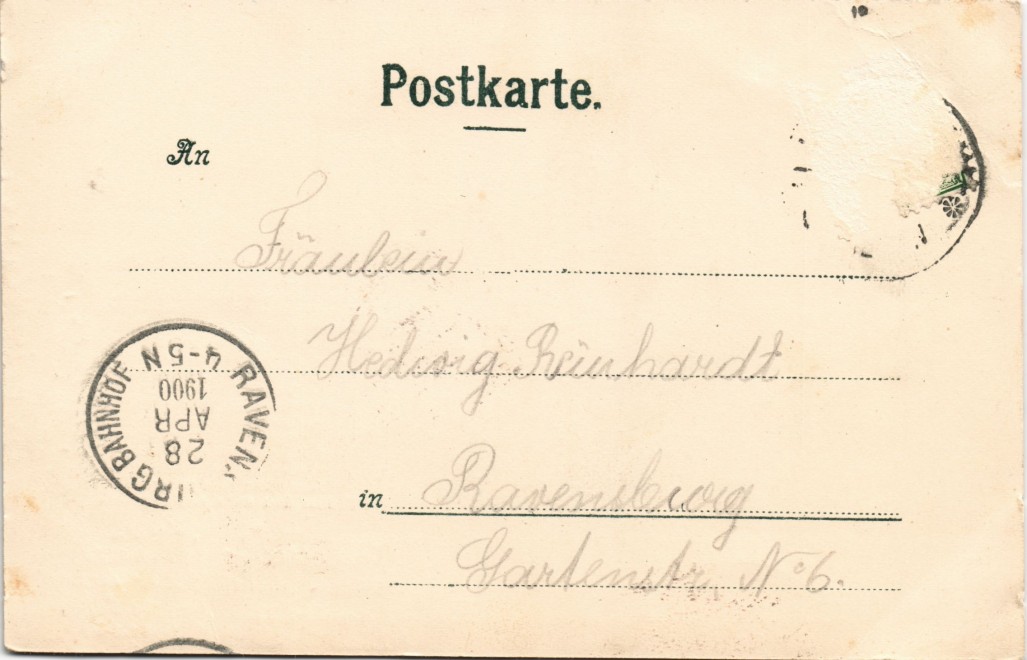 Postkarte.
An
Fräulein
Hedwig Reinhardt
in Ravensburg
Gartenstr. No 6.
RAVENS URG BAHNHOF
28
APR
1900
4-5N